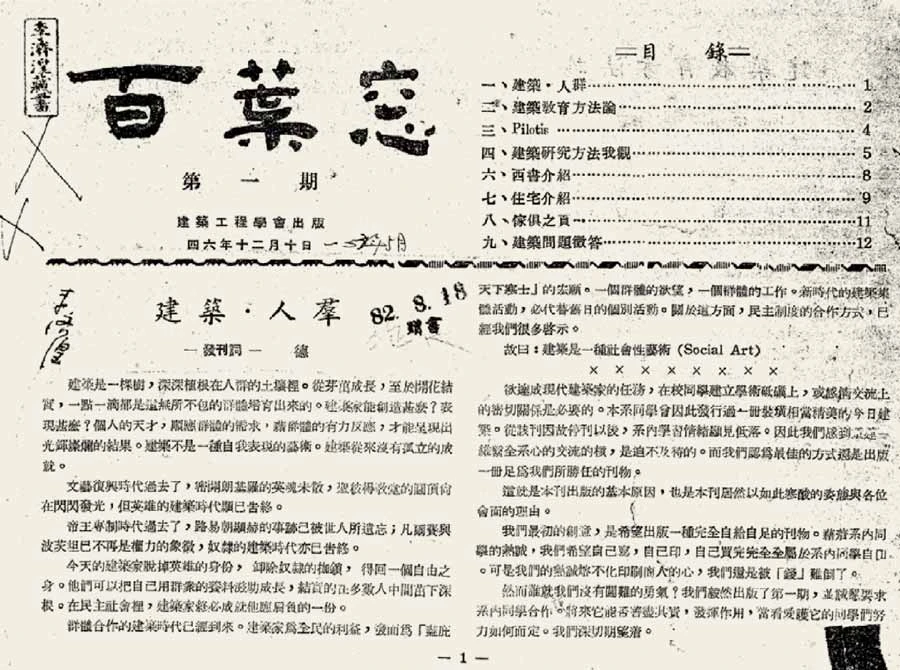 李濟湟藏書
百葉窓
第一期
建築工程學會出版
四六年十二月十日
=目錄=
一、建築・人群……1
二、建築敎育方法論……2
三、Pilotis……4
四、建築研究方法我觀……5
六、西書介紹……8
七、住宅介紹……9
八、傢俱之頁……11
九、建築問題徵答……12
82. 8. 18
贈書
建築・人羣
—發刊詞— 德
建築是一棵樹，深深植根在人群的土壤裡。從芽苗成長，至於開花結
實，一點一滴都是這無所不包的群體培育出來的。建築家能創造甚麼？表
現甚麼？個人的天才，順應群體的需求，藉群體的有力反應，才能呈現出
光輝燦爛的結果。建築不是一種自我表現的藝術。建築從來沒有孤立的成
就。
文藝復興時代過去了，密開朗基羅的英魂未散，聖彼得敎堂的圓頂尙
在閃閃發光，但英雄的建築時代顯已告終。
帝王專制時代過去了，路易朝顯赫的事跡已被世人所遺忘；凡爾賽與
波茨坦已不再是權力的象徵，奴隸的建築時代亦已告終。
今天的建築家脫掉英雄的身份，卸除奴隸的枷鎖，得回一個自由之
身。他們可以把自己用群衆的養料滋助成長，結實的在多數人中間苗下深
根。在民主社會裡，建築家終必成就他應肩負的一份。
群體合作的建築時代已經到來。建築家爲全民的利益，發而爲「蓋庇
天下寒士」的宏願。一個群體的欲望，一個群體的工作。新時代的建築集
體活動，必代替舊日的個別活動。關於這方面，民主制度的合作方式，已
經我們很多啓示。
故曰：建築是一種社會性藝術 (Social Art)
× × × × × × × ×
欲達成現代建築家的任務，在校同學建立學術砥礪上，或感情交流上
的密切關係是必要的。本系同學會因此發行過一冊裝璜相當精美的今日建
築。從該刊因故停刊以後，系內學習情緒顯見低落。因此我們感到
繫全系心的交流的橋，是迫不及待的。而我們認爲最佳的方式還是出版
一冊足爲我們所勝任的刊物。
這就是本刊出版的基本原因，也是本刊居然以如此寒酸的姿態與各位
會面的理由。
我們最初的創意，是希望出版一種完全自給自足的刊物。藉着系內同
學的熱誠，我們希望自己寫，自己印，自己買完完全全屬於系內同學自己
。可是我們的熱誠熔不化印刷商人的心，我們還是被「錢」難倒了。
然而誰說我們沒有闖難的勇氣？我們毅然出版了第一期，並誠懇要求
系內同學合作。將來它能否善盡其責，發揮作用，當看愛護它的同學們努
力如何而定。我們深切期望着。
— 1 —